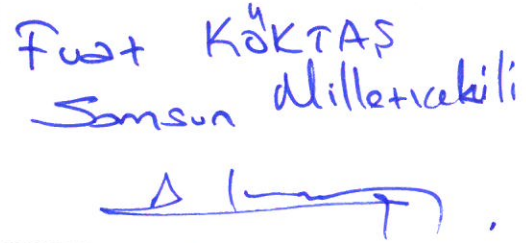 Fuat KÖKTAŞ
Samsun Milletvekili